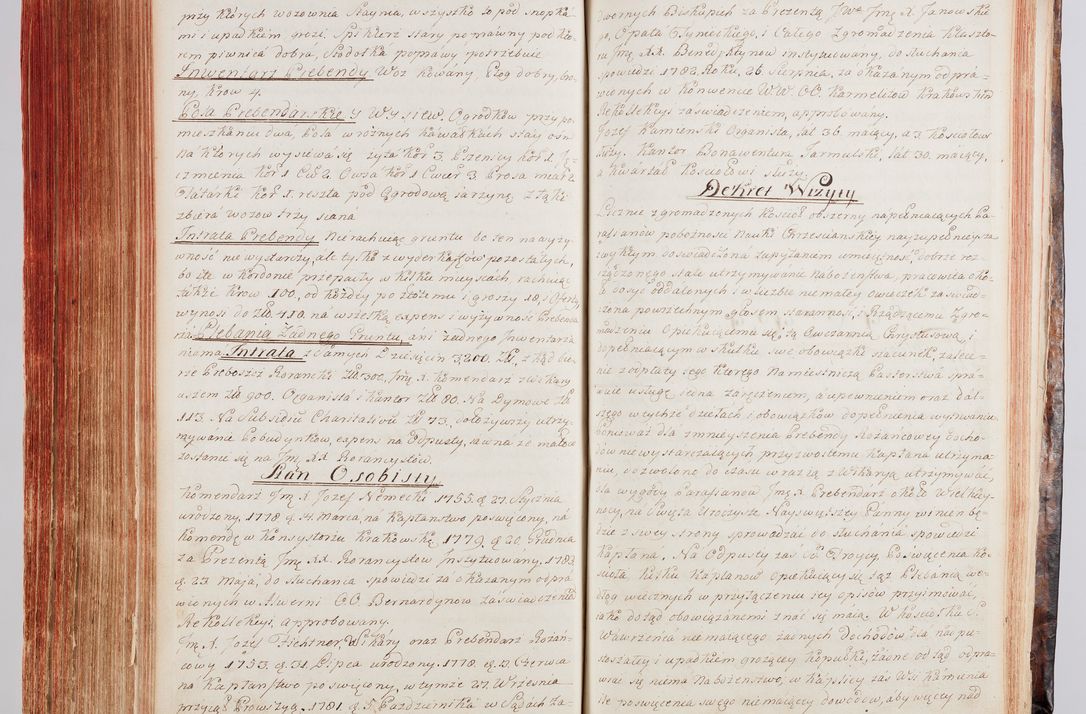 przy których wozownia Staynia, wszystko to pod snopka-
mi i upadkiem grozi. Spiklerz stary po prawny pod któ-
rem piwnica dobra, Stodołka poprawy potrzebuie
Inwentarz Prebendy Woz kowány, Pług dobry, bro-
ny, krow 4.
Pola Prebendarskie y Wysiew. Ogrodków przy po-
mieszkaniu dwa, Pola w rożnych kawałkach stay osm
na których wysiewa się żyta kor 3. Pszenicy kor 1. Ję-
czmienia kor 1 Cwi 2 Owsa kor 1 Cwier 3 Prosa miar 2
Tatarki kor 1. reszta pod Ogrodową iarzynę z łąki
zbiera wozow trzy siana
Intrata Prebendy Nierachuiąc gruntu bo ten na wyży-
wność nie wystarczy, ale tylko z wyderkafów pozostałych,
bo ile w kordonie przepadły w kilku mieyscach, rachuiąc
także krow 100, od każdey po złożemu i groszy 18,
wynosi do Zł 410. na wszelką expens i wyżywność Prebenda
rii. Plebania Żadnego Gruntu, ani żadnego Inwentarza
niema. Intrata z samych Dziesięcin 3200 Zł, z kąd bie-
rze Proboszcz Rorancki Zł. 300, Jmę X. komendarz z wikary
uszem Zł 900. Organista i kantor Zł 80. Na Dymowe Zł
113. Na Subsidiu Charitativu Zł 73, dołożywszy utrzy-
mywanie Pobudynkow, expens na Odpusty, rowna ze małe co
zostanie się na Jmę XX Rorancystów.
Stan Osobisty
Komendarz Jmę X Jozef Nemecki 1755. d 27. Stycznia
urodzony, 1778 d 14. Marca, na kapłanstwo poswięcony, na
komendę w konsystorzu krakowską 1779 d 20. Grudnia
za Prezentą Jmę XX. Rorancystów Instytuowany, 1783
d 23 Maja, do słuchania spowiedzi za okazanym odpra
wionych w Alwerni OO. Bernardynow zaświadczeniem
Rekollekcyi, approbowany.
Jmę X. Jozef Fichtner, Wikary oraz Prebendarz Rożan-
cowy 1753. d. 31. Lipca urodzony. 1778 d. 13. Czerwca
na kapłaństwo poswięcony, wtymże 27. Września
przyiął Prowizyą. 1781 d 5. Października w Sądach Za-
dwornych Biskupich za Prezentą JWa Jmę X. Janowskie
go, Opata Tynieckiego, i Całego Zgromadzenia klaszto
ra Jmę XX. Benedyktynow instytuowany, do słuchania
spowiedzi 1782. Roku, 26. Sierpnia, za okazanym odpra-
wionych w konwencie W.W. OO. Karmelitow krakowskim
Rekollekcyi zaświadczeniem, approbowany.
Jozef Kamienski Organista, lat 36. maiący, a 3. kościołowi
służy. Kantor Bonawentura Jarmulski, lat 30. maiący,
a kwartał kościołowi służy.
Dekret Wizyty
Licznie zgromadzonych kościoł obszerny napełniaiących Pa-
rafianów pobożność nauki Chrześcianskiey nayzupełnieysza
zwykłym doświadczona zapytaniem umieiętność, dobrze roz-
rządzonego stałe utrzymywanie nabożeństwa, pracowita oko-
ło dosyć oddalonych, i w liczbie niemałey owieczek zaświad-
czona powszechnym głosem staranność, i Rządzącemu Zgro-
madzeniu Opiekuiącemu się tą Owczarnią Chrystusową i
dopełniaiącym w skutku swe obowiązki szacunek, zaście-
nie z odpłaty tego ktorego namiestniczą Pasterstwa spra-
wuie usługę iedna zaręczeniem, a upewnieniem oraz dal-
szego w tychże dziełach i obowiązków dopełnienia wyznawanie
Ponieważ dla zmnieyszenia Prebendy Rożancowey Docho-
dow niewystarczaiących przyzwoitemu kapłana utrzyma-
niu, dozwolono do czasu w razią z Wikaryą utrzymywać,
dla wygody Parafianow Jmę X Prebendarz około Wielkiey-
nocy, na Swięta Uroczyste Nayswiętszey Panny winien bę-
dzie z swey strony sprowadzać do słuchania spowiedzi
kapłana. Na Odpusty zaś Sti Troycy, Poswięcenia ko-
scioła kilku kapłanow opiekuiący się tąż Plebanią we-
dług wiecznych w przyłączeniu iey opisów przyimować,
iako dotąd obowiązanemi znać się maią. W kościołku S.
Wawrzenca niemaiącego żadnych dochodów dla spu-
stoszałey i upadkiem grożącey kopułki, żadne odtąd odpra-
wiać się niema Nabożenstwo, w kaplicy zaś Wsi Kamienia
ile poswięcenia swego niemaiącey dowodów, aby więcey nad